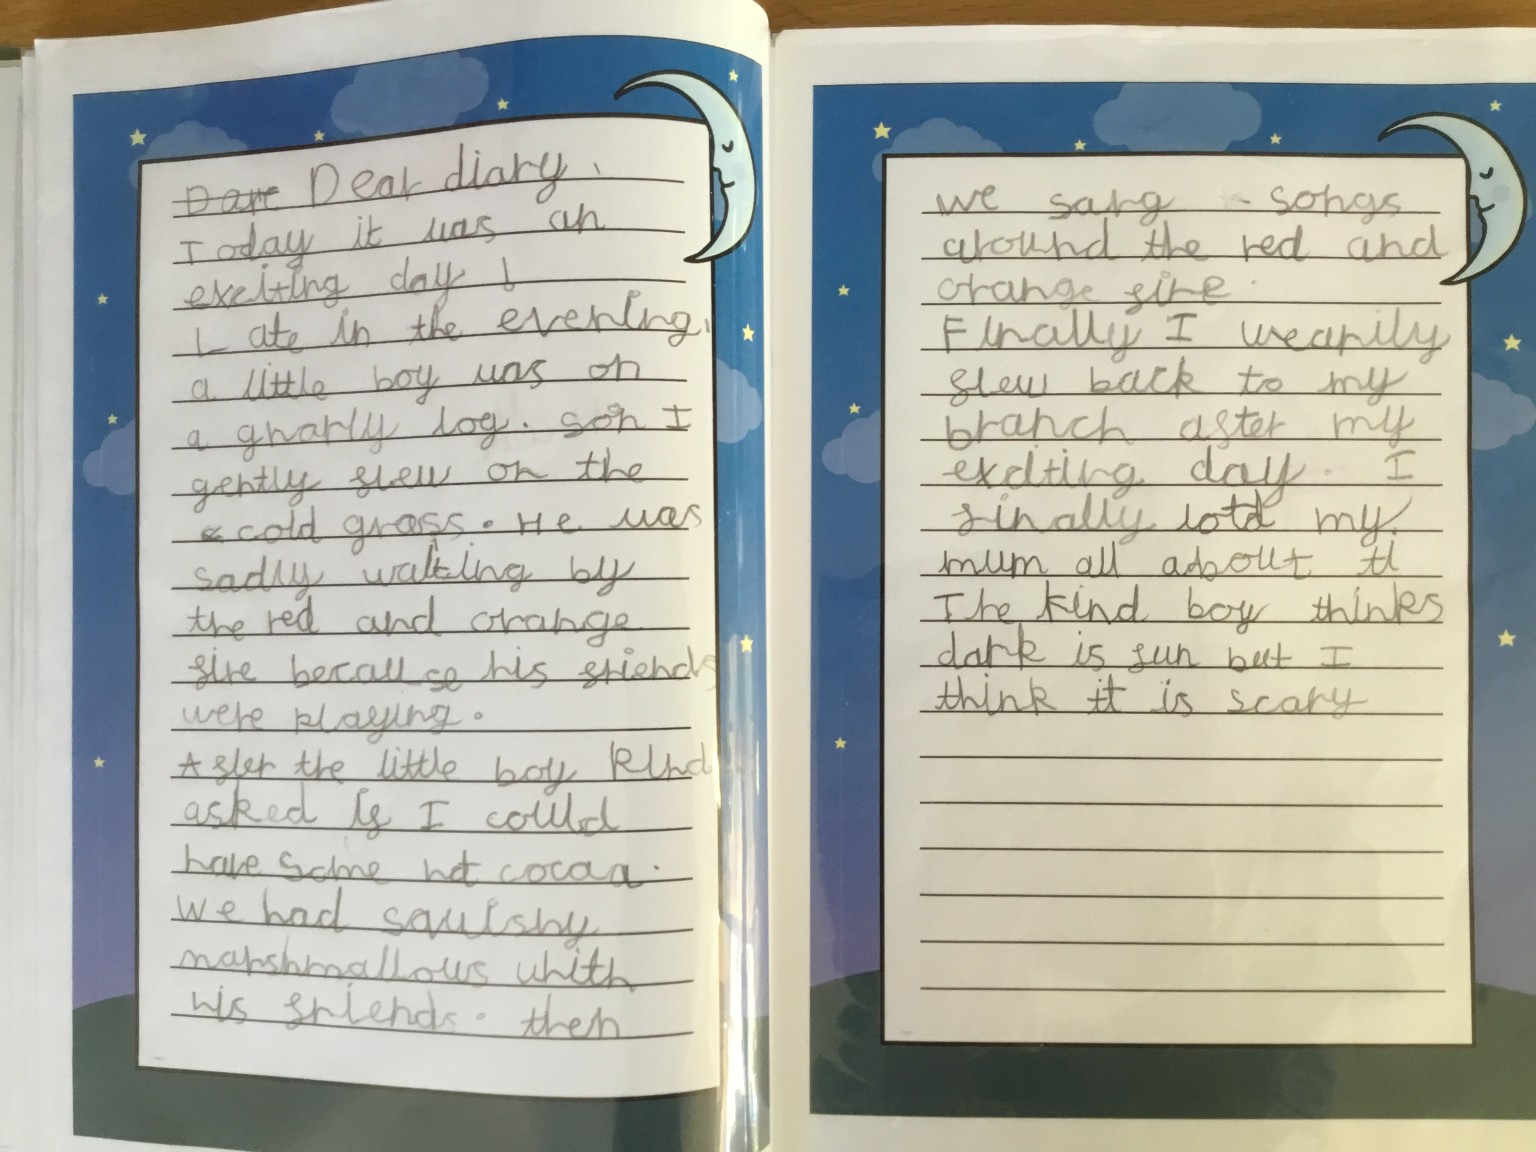 Dare Dear diary,
Today it was an
exciting day !
Late in the evening,
a little boy was on
a gnarly log. son I
gently flew on the
cold grass. He was
sadly waiting by
the red and orange
fire because his friends
were playing.
After the little boy kind
asked if I could
have some hot cocoa.
We had squishy
marshmallows whith
his friends. then
we sang songs
around the red and
orange fire.
Finally I wearily
flew back to my
branch after my
exciting day. I
finally totd my
mum all about tl
The kind boy thinks
dark is fun but I
think it is scary